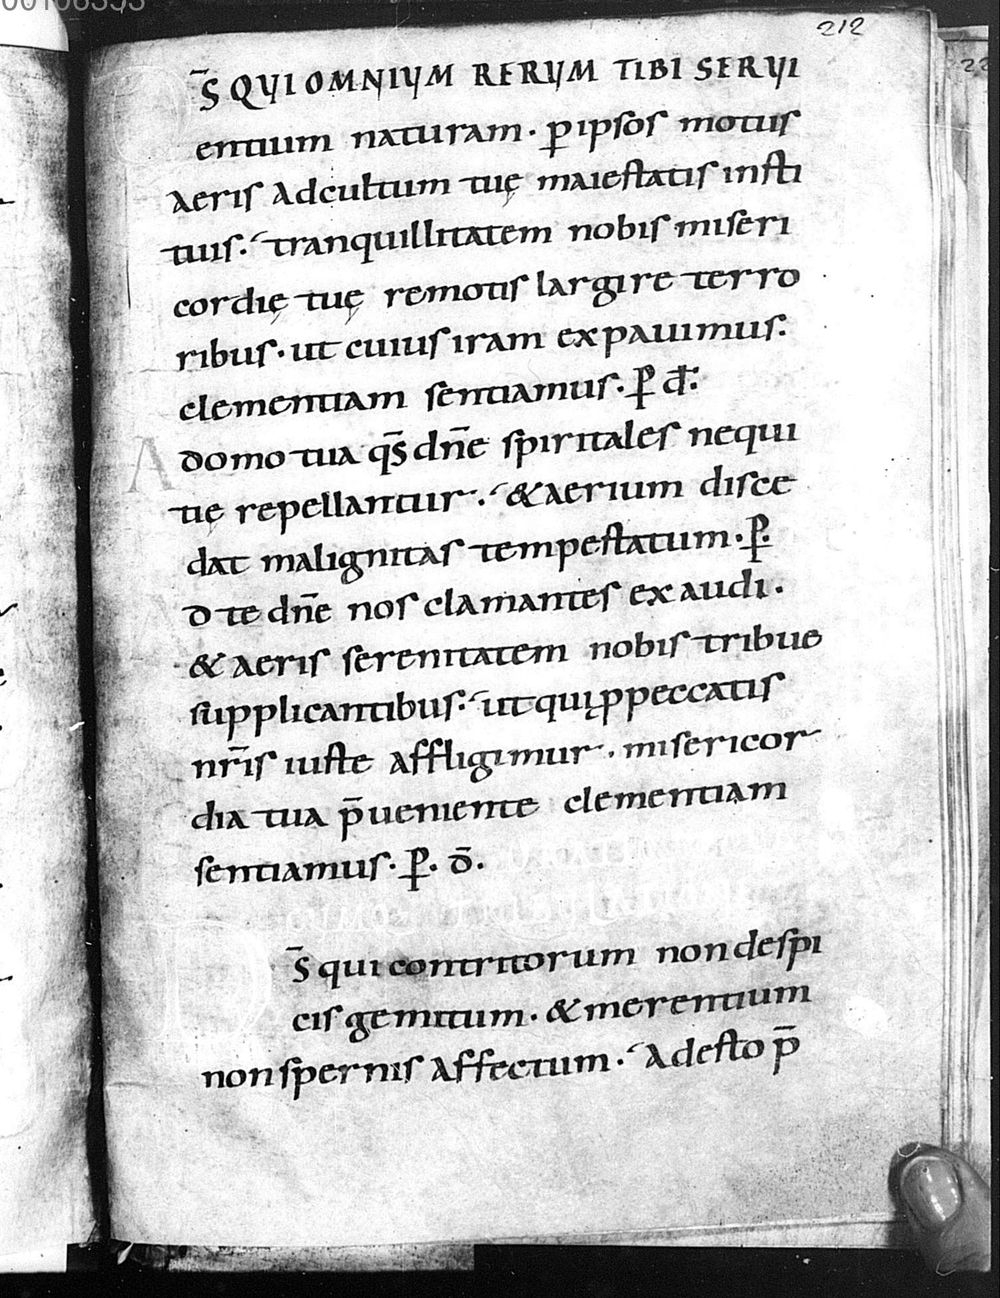 212
S̄ QUI OMNIUM RERUM TIBI SERUI
entium naturam · p̲ ipsos motus
aeris ad cultum tuę maiestatis insti
tuis · tranquillitatem nobis miseri
cordię tuę remotis largire terro
ribus · ut cuius iram expauimus :
clementiam sentiamus · P̲ đ :
A domo tua qs̄ dn̄e spiritales nequi
tię repellantur · & aerium disce
dat malignitas tempestatum · P̲ .
D te dn̄e nos clamantes exaudi ·
& aeris serenitatem nobis tribue
supplicantibus : ut qui p̲ peccatis
nr̄is iuste affligimur · misericor
dia tua p̄ueniente clementiam
sentiamus · P̲ · d̄ ·
S̄ qui contritorum non despi
cis gemitum · & merentium
non spernis affectum · Adesto p̄